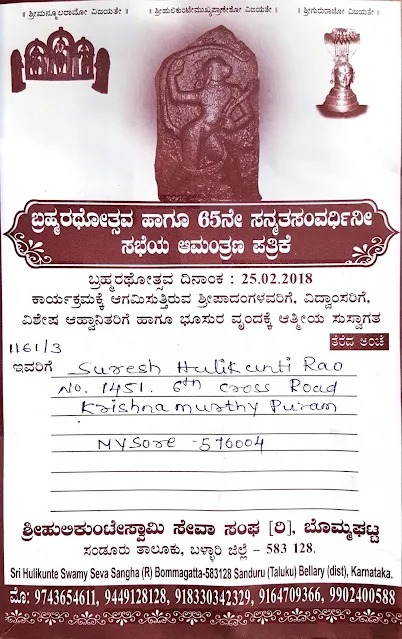 ॥ ಶ್ರೀಮನ್ಮೂಲರಾಮೋ ವಿಜಯತೇ ॥ ॥ ಶ್ರೀಹುಲಿಕುಂಟೇಮುಖ್ಯಪ್ರಾಣೇಶೋ ವಿಜಯತೇ ॥ ॥ ಶ್ರೀಗುರುರಾಜೋ ವಿಜಯತೇ ॥
ಬ್ರಹ್ಮರಥೋತ್ಸವ ಹಾಗೂ 65ನೇ ಸನ್ಮತಸಂವರ್ಧಿನೀ
ಸಭೆಯ ಆಮಂತ್ರಣ ಪತ್ರಿಕೆ
ಬ್ರಹ್ಮರಥೋತ್ಸವ ದಿನಾಂಕ : 25.02.2018
ಕಾರ್ಯಕ್ರಮಕ್ಕೆ ಆಗಮಿಸುತ್ತಿರುವ ಶ್ರೀಪಾದಂಗಳವರಿಗೆ, ವಿದ್ವಾಂಸರಿಗೆ,
ವಿಶೇಷ ಆಹ್ವಾನಿತರಿಗೆ ಹಾಗೂ ಭೂಸುರ ವೃಂದಕ್ಕೆ ಆತ್ಮೀಯ ಸುಸ್ವಾಗತ
1161/3 ತೆರೆದ ಅಂಚೆ
ಇವರಿಗೆ Suresh Hulikunti Rao
No. 1451. 6th Cross Road
Krishnamurthy Puram
Mysore - 576004
ಶ್ರೀಹುಲಿಕುಂಟೇಸ್ವಾಮಿ ಸೇವಾ ಸಂಘ [ರಿ], ಬೊಮ್ಮಘಟ್ಟ
ಸಂಡೂರು ತಾಲೂಕು, ಬಳ್ಳಾರಿ ಜಿಲ್ಲೆ – 583 128.
Sri Hulikunte Swamy Seva Sangha (R) Bommagatta-583128 Sanduru (Taluku) Bellary (dist), Karnataka.
ಮೊ: 9743654611, 9449128128, 918330342329, 9164709366, 9902400588